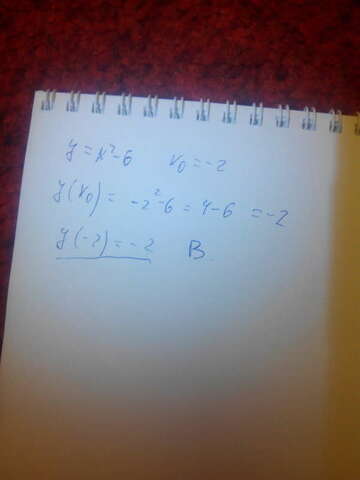 y = x²-6 x₀ = -2
y(x₀) = -2²-6 = 4-6 = -2
y(-2) = -2 B.